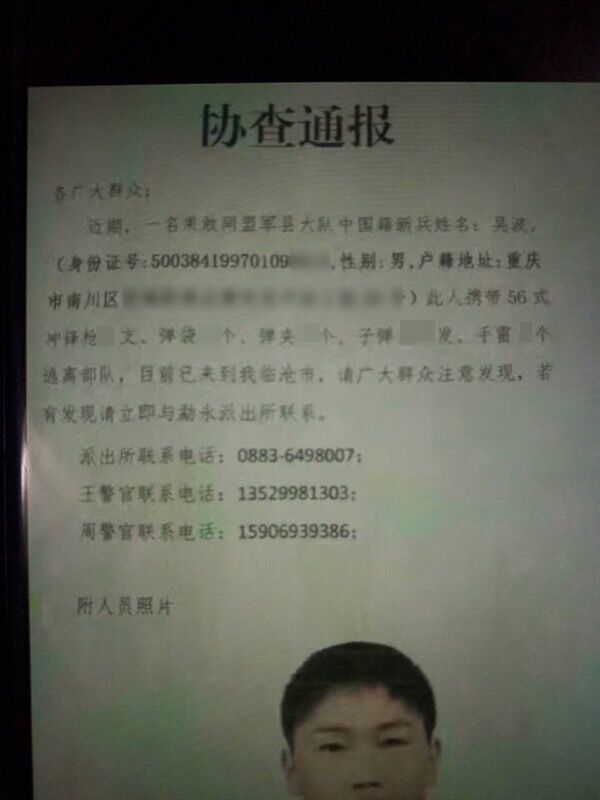 协查通报
各广大群众:
近期，一名果敢同盟军县大队中国籍新兵姓名：吴波，
（身份证号:50038419970109,性别:男,户籍地址:重庆
市南川区）此人携带56式
冲锋枪 文、弹袋 个、弹夹 个、子弹 发、手雷 个
逃离部队，目前已来到我临沧市，请广大群众注意发现，若
有发现请立即与勐永派出所联系。
派出所联系电话：0883-6498007;
王警官联系电话：13529981303;
周警官联系电话：15906939386;
附人员照片